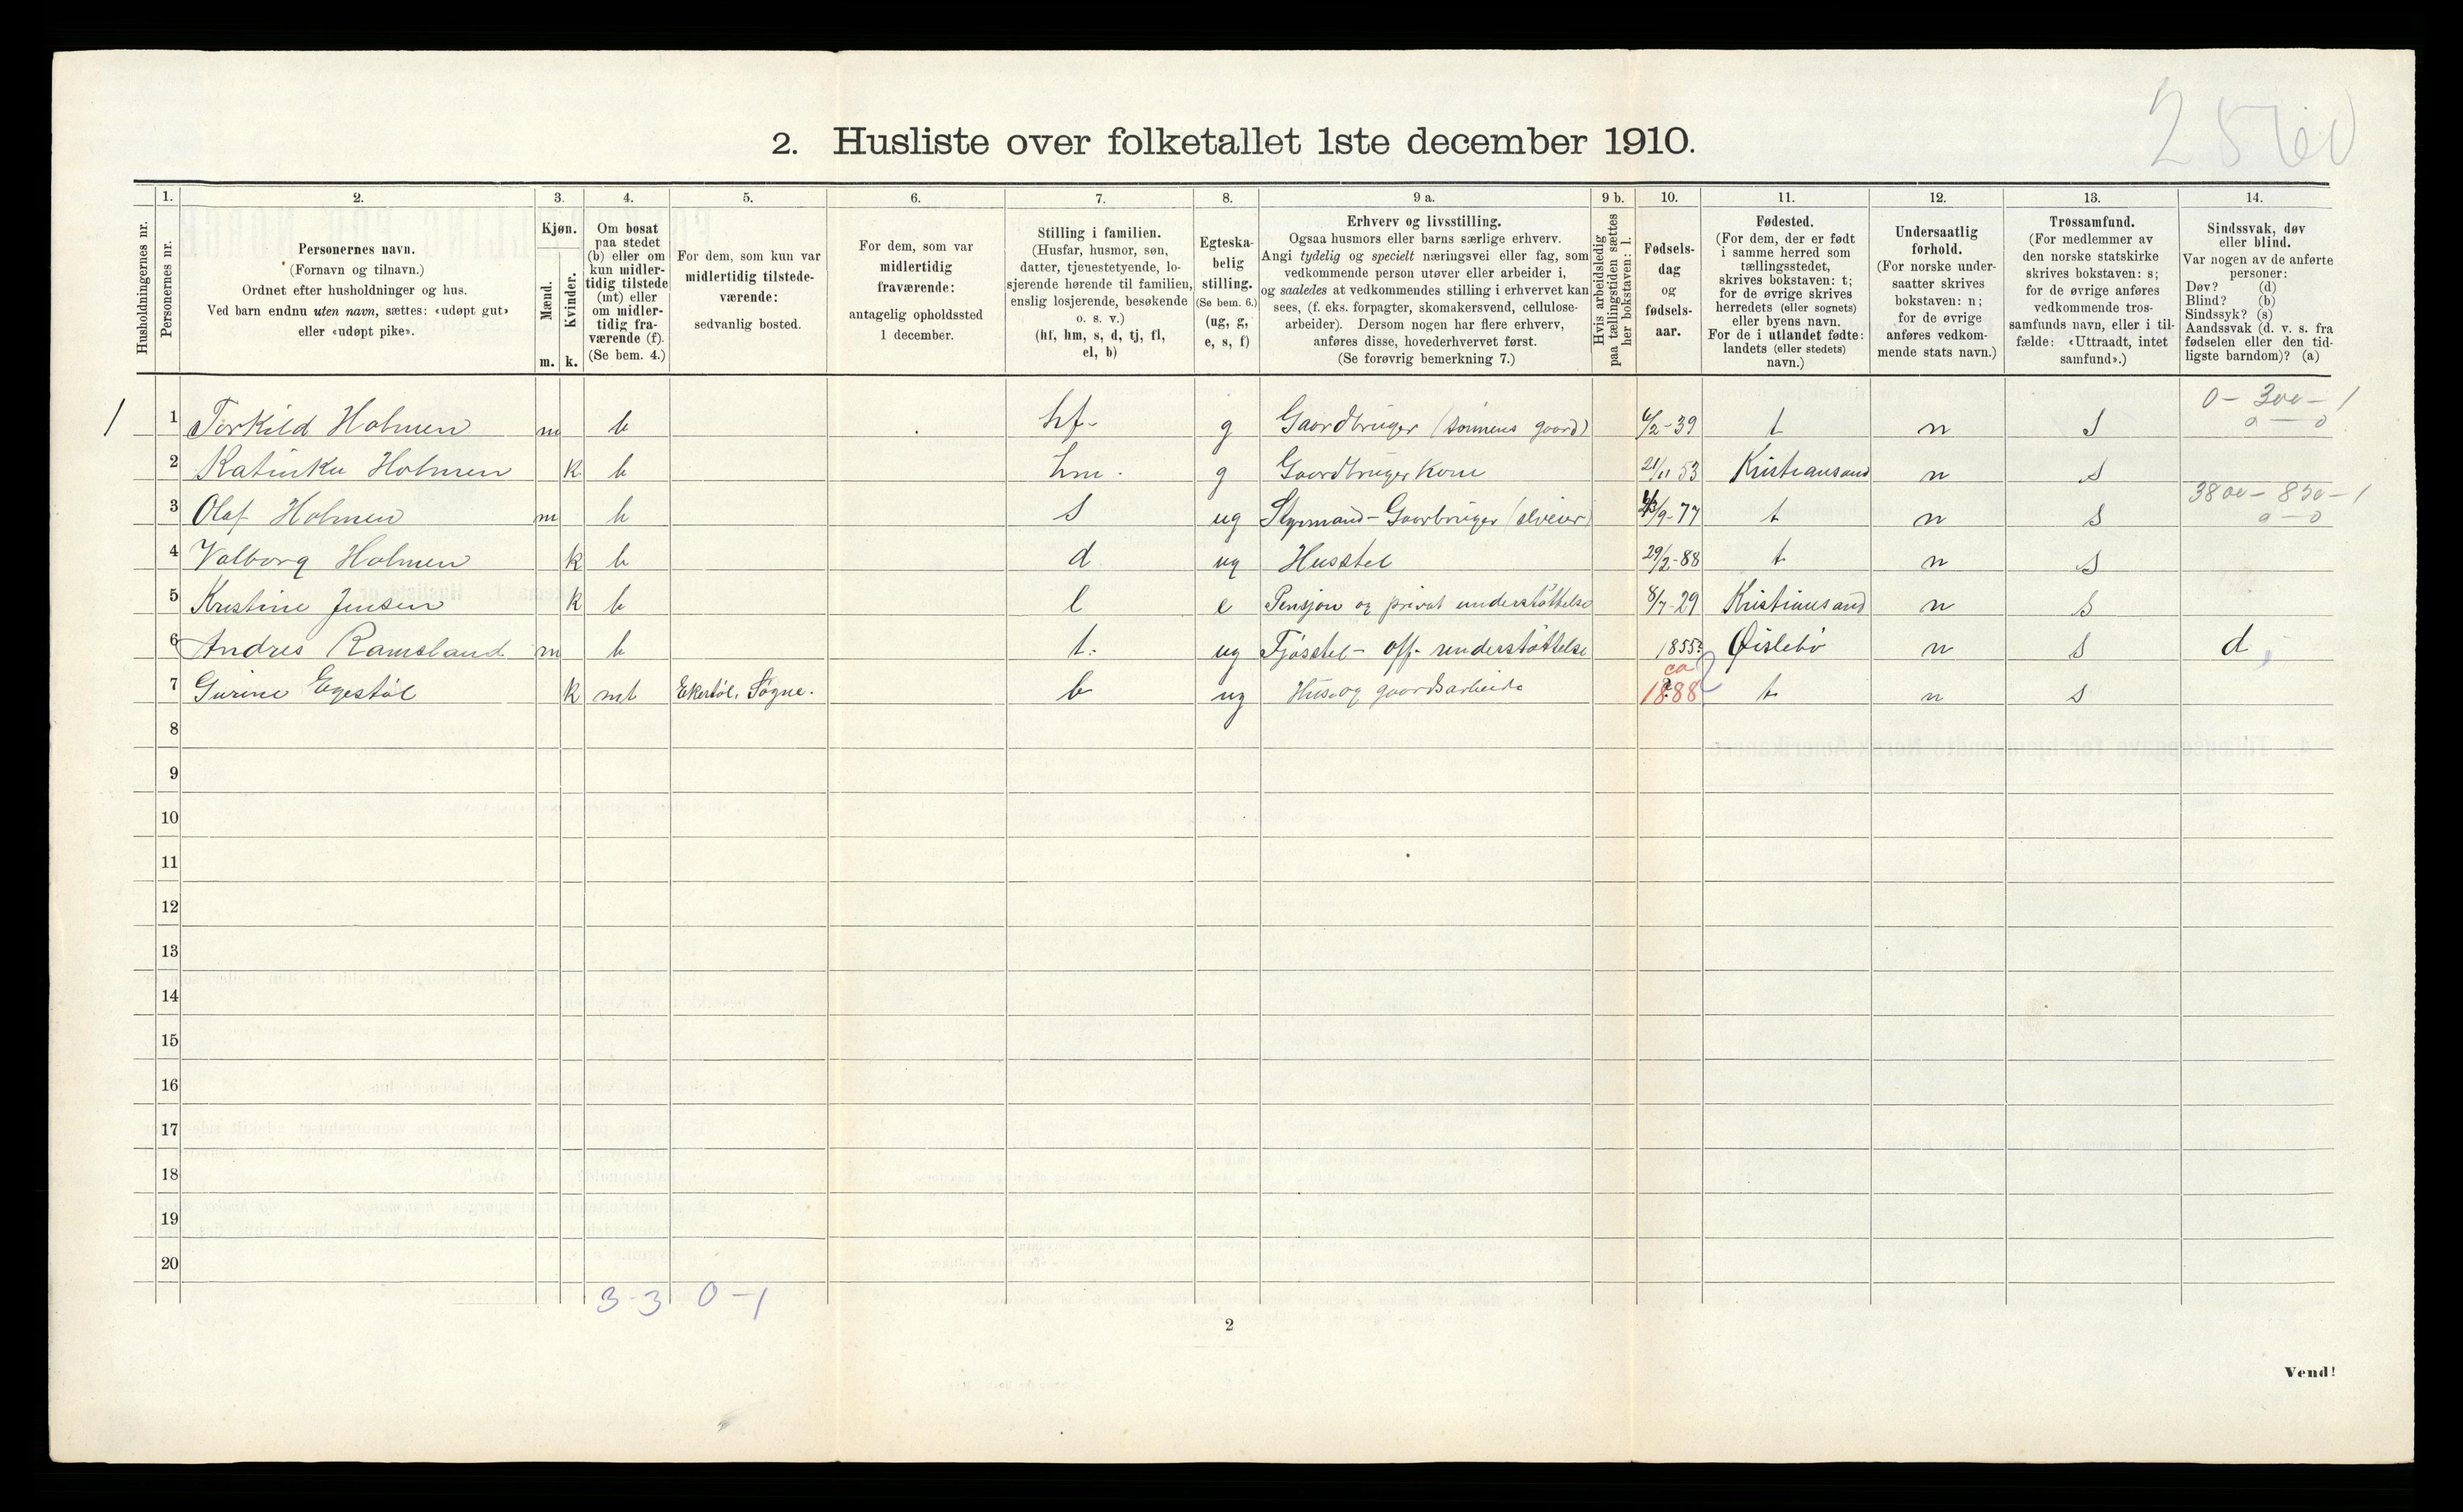 2560
2. Husliste over folketallet 1ste december 1910.
1. 2. 3. 4. 5. 6. 7. 8. 9 a. 9 b. 10. 11. 12. 13. 14.
Husholdningernes nr.
Personernes nr.
Personernes navn.
(Fornavn og tilnavn.)
Ordnet efter husholdninger og hus.
Ved barn endnu uten navn, sættes: «udøpt gut»
eller «udøpt pike».
Kjøn.
Mænd.
Kvinder.
m. k.
Om bosat
paa stedet
(b) eller om
kun midler-
tidig tilstede
(mt) eller
om midler-
tidig fra-
værende (f).
(Se bem. 4.)
For dem, som kun var
midlertidig tilstede-
værende:
sedvanlig bosted.
For dem, som var
midlertidig
fraværende:
antagelig opholdssted
1 december.
Stilling i familien.
(Husfar, husmor, søn,
datter, tjenestetyende, lo-
sjerende hørende til familien,
enslig losjerende, besøkende
o. s. v.)
(hf, hm, s, d, tj, fl,
el, b)
Egteska-
belig
stilling.
(Se bem. 6.)
(ug, g,
e, s, f)
Erhverv og livsstilling.
Ogsaa husmors eller barns særlige erhverv.
Angi tydelig og specielt næringsvei eller fag, som
vedkommende person utøver eller arbeider i,
og saaledes at vedkommendes stilling i erhvervet kan
sees, (f. eks. forpagter, skomakersvend, cellulose-
arbeider). Dersom nogen har flere erhverv,
anføres disse, hovederhvervet først.
(Se forøvrig bemerkning 7.)
Hvis arbeidsledig
paa tællingstiden sættes
her bokstaven: l.
Fødsels-
dag
og
fødsels-
aar.
Fødested.
(For dem, der er født
i samme herred som
tællingsstedet,
skrives bokstaven: t;
for de øvrige skrives
herredets (eller sognets)
eller byens navn.
For de i utlandet fødte:
landets (eller stedets)
navn.)
Undersaatlig
forhold.
(For norske under-
saatter skrives
bokstaven: n;
for de øvrige
anføres vedkom-
mende stats navn.)
Trossamfund.
(For medlemmer av
den norske statskirke
skrives bokstaven: s;
for de øvrige anføres
vedkommende tros-
samfunds navn, eller i til-
fælde: «Uttraadt, intet
samfund».)
Sindssvak, døv
eller blind.
Var nogen av de anførte
personer:
Døv? (d)
Blind? (b)
Sindssyk? (s)
Aandssvak (d. v. s. fra
fødselen eller den tid-
ligste barndom)? (a)
0 - 300 - 1
1 1 Torkild Holmen m b hf- g Gaardbruger (sønnens gaard) 6/2-39 t n s 0 - 0
2 Katinka Holmen k b hm. g Gaardbruger Kone 21/11 53 Kristiansand n s
3800 - 850 - 1
3 Olaf Holmen m b s ug Styrmand - Gaarbruger (selveier) /9-77 t n s 0 - 0
4 Valborg Holmen k b d ug Husstel 29/2-88 t n s
5 Kristine Jensen k b l e Pensjon og privat understøttelse 8/7-29 Kristiansand n s
6 Andres Ramsland m b t. ug Fjøsstel - off. understøttelse 1855? Øislebø n s d
ca
7 Gurine Egestøl k mt Ekestøl, Søgne. b ug Hus og gaardsarbeide 1888 ? t n s
8
9
10
11
12
13
14
15
16
17
18
19
20
3-3 0-1
2
Vend!